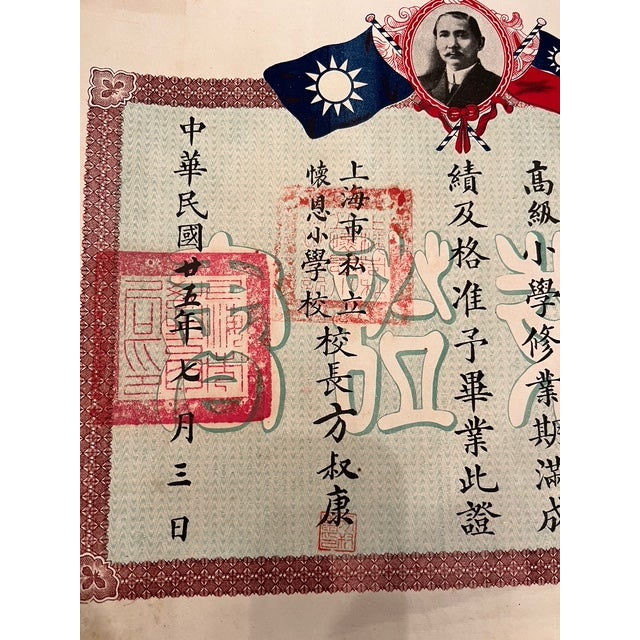 高級小學修業期滿成
績及格准予畢業此證
上海市私立
懷恩小學校
校長方叔康
中華民國廿五年七月三日